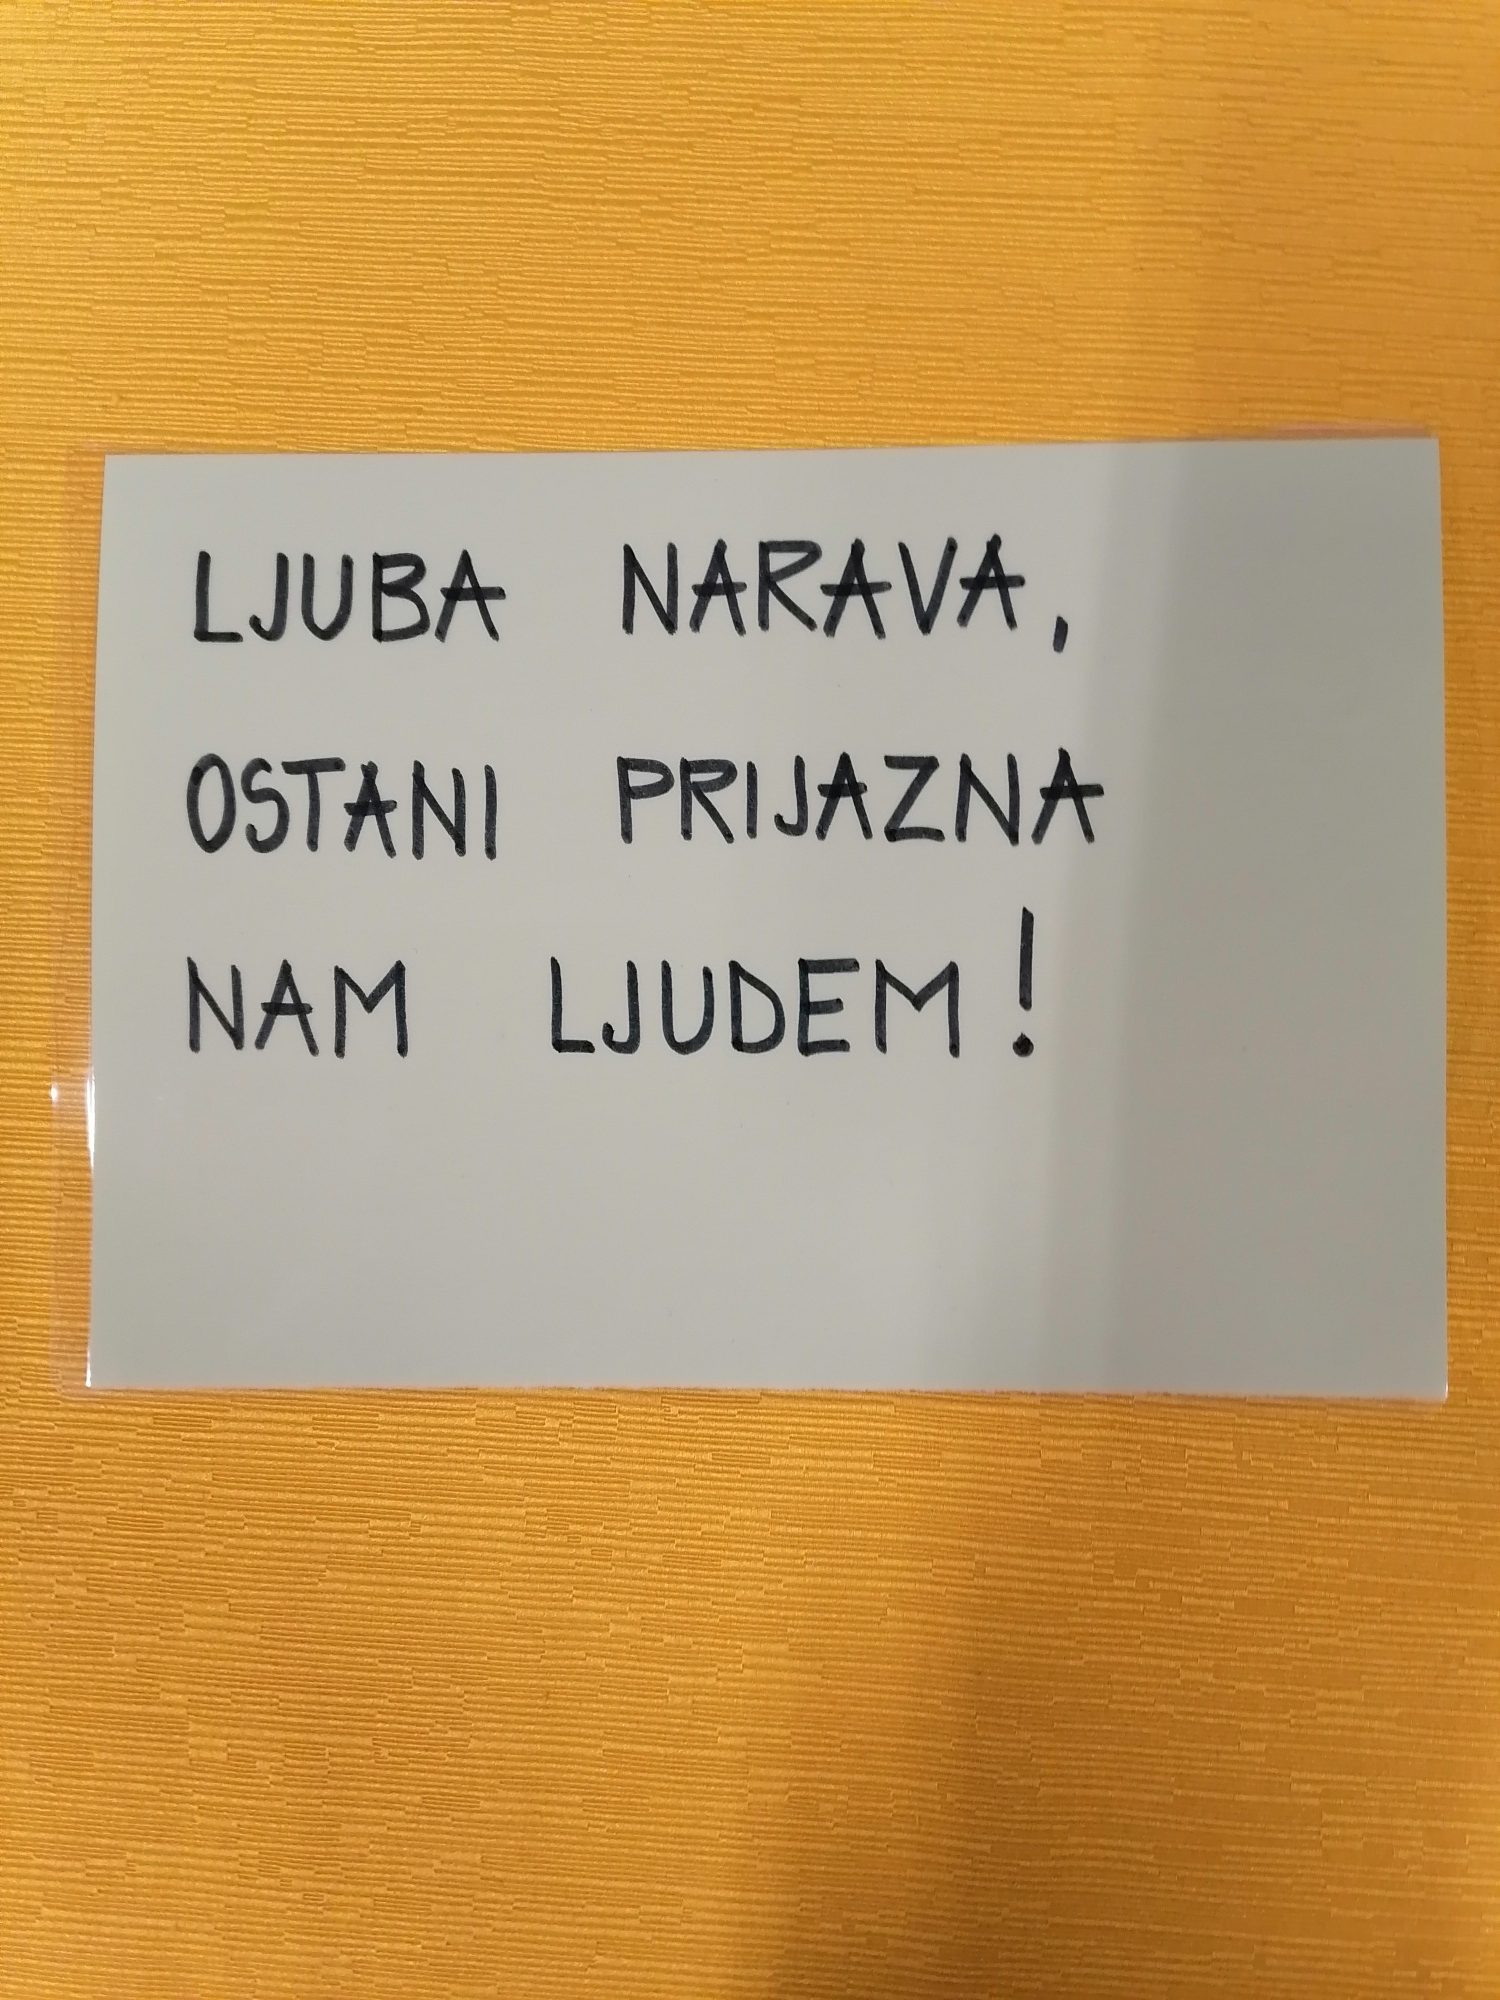 LJUBA NARAVA,
OSTANI PRIJAZNA
NAM LJUDEM!